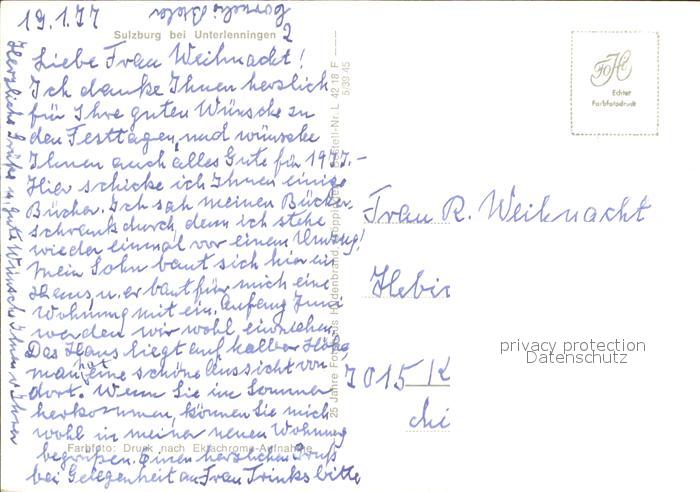 19.1.77
Sulzburg bei Unterlenningen
2
Liebe Frau Weihnacht!
Ich danke Ihnen herzlich
für Ihre guten Wünsche zu
den Festtagen und wünsche
Ihnen auch alles Gute für 1977.-
Hier schicke ich Ihnen einige
Bücher. Ich sah meinen Bücher-
schrank durch, denn ich stehe
wieder einmal vor einem Umzug!
Mein Sohn baut sich hier ein
Haus u. er baut für mich eine
Wohnung mit ein. Anfang Juni
werden wir wohl einziehen.
Das Haus liegt auf halber Höhe
man hat eine schöne Aussicht von
dort. Wenn Sie im Sommer
herkommen, können Sie mich
wohl in meiner neuen Wohnung
begrüßen. Einen herzlichen Gruß
bei Gelegenheit an Frau Trinks bitte
Herzliche Grüße u. gute Wünsche Ihnen v. Ihrer
Farbfoto: Druck nach Ektachrome-Aufnahme
25 Jahre Fotohaus Hildenbrand, Bestell-Nr. L 42 18 F
5/39 45
Echter
Farbfotodruck
Frau R. Weihnacht
7015 K
privacy protection
Datenschutz